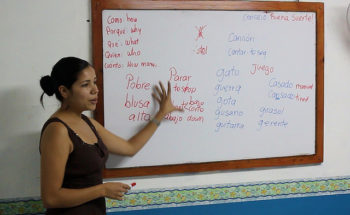 Como: how
Porque: why
Que: what
Quien: who
Cuanto: How many
sol
Canción
Cantar: to
Consejo
Buena Suerte!
Pobre
blusa
alta
Parar
to stop
abajo down
gato
guerra
gota
gusano
guitarra
juego
girasol
gerente
Casado married
Cansado tired